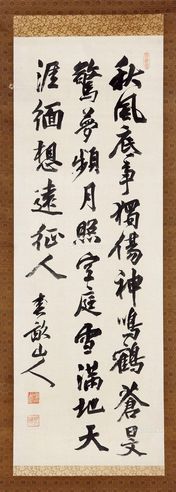 秋風底事獨傷神鳴鶴蒼旻
驚夢頻月照空庭雪滿地天
涯緬想遠征人
春畝山人